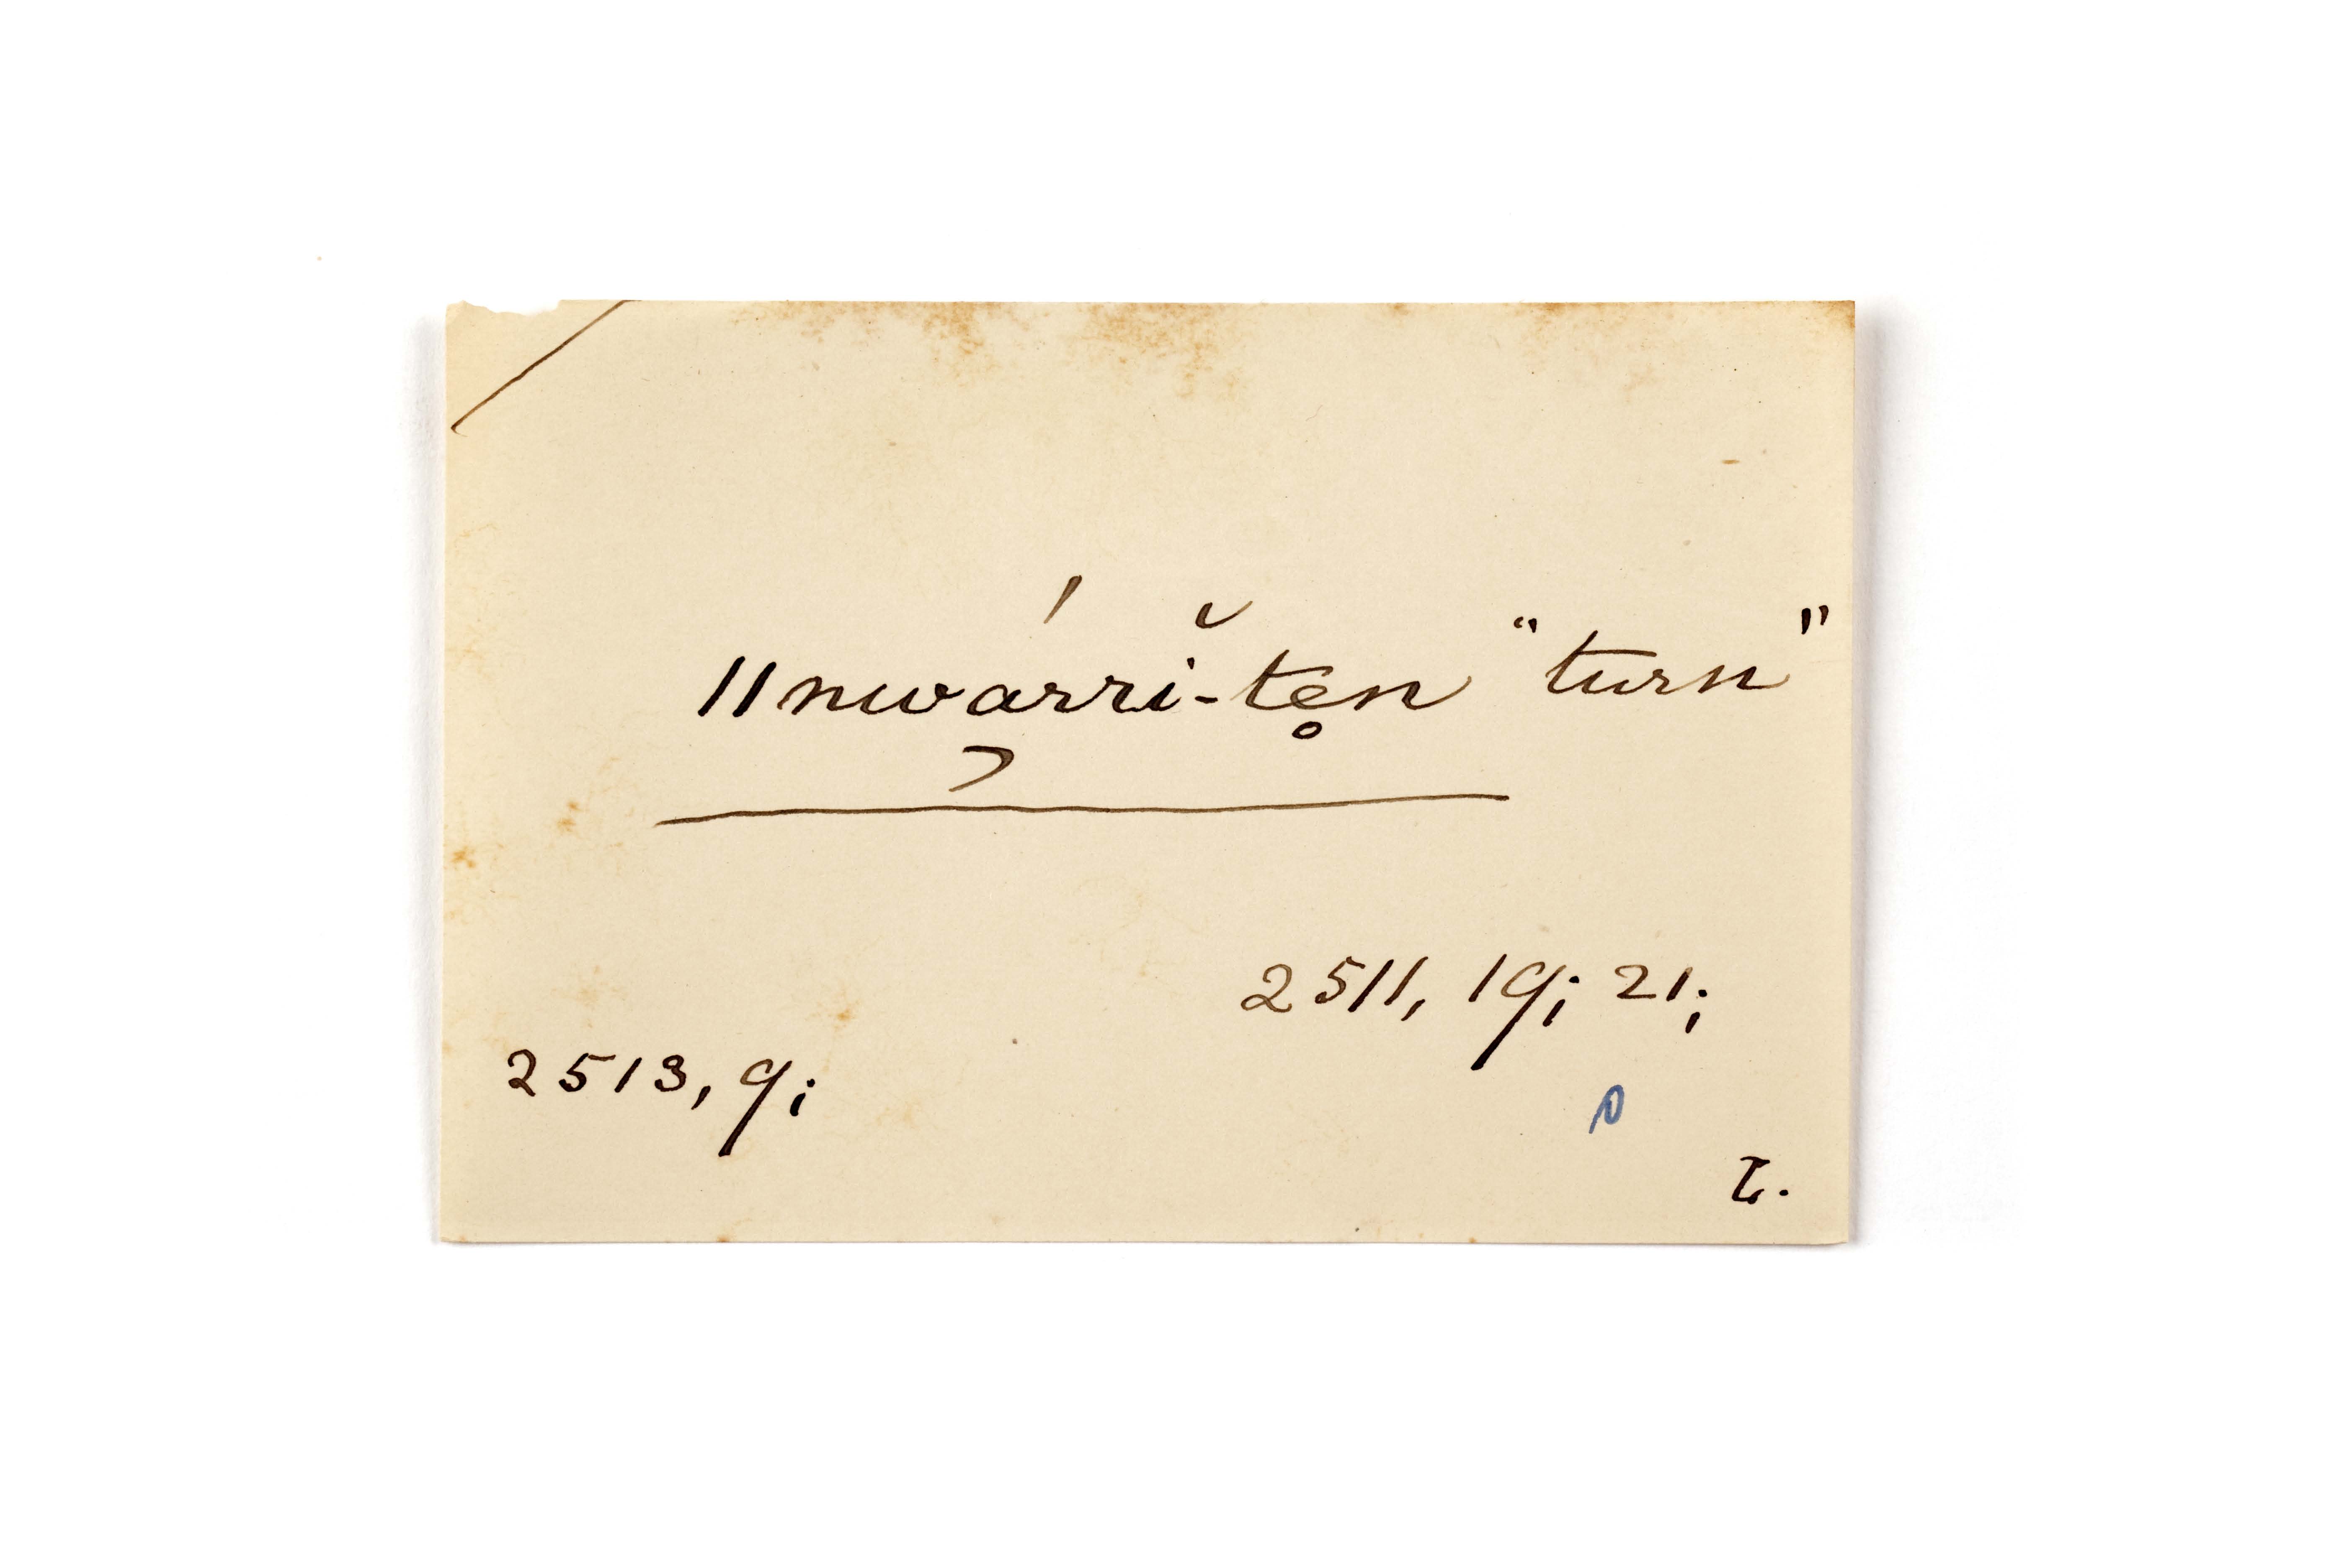 ǁnwárrĭ-te̥n "turn"
2511, 19; 21;
2513, 9;
L.